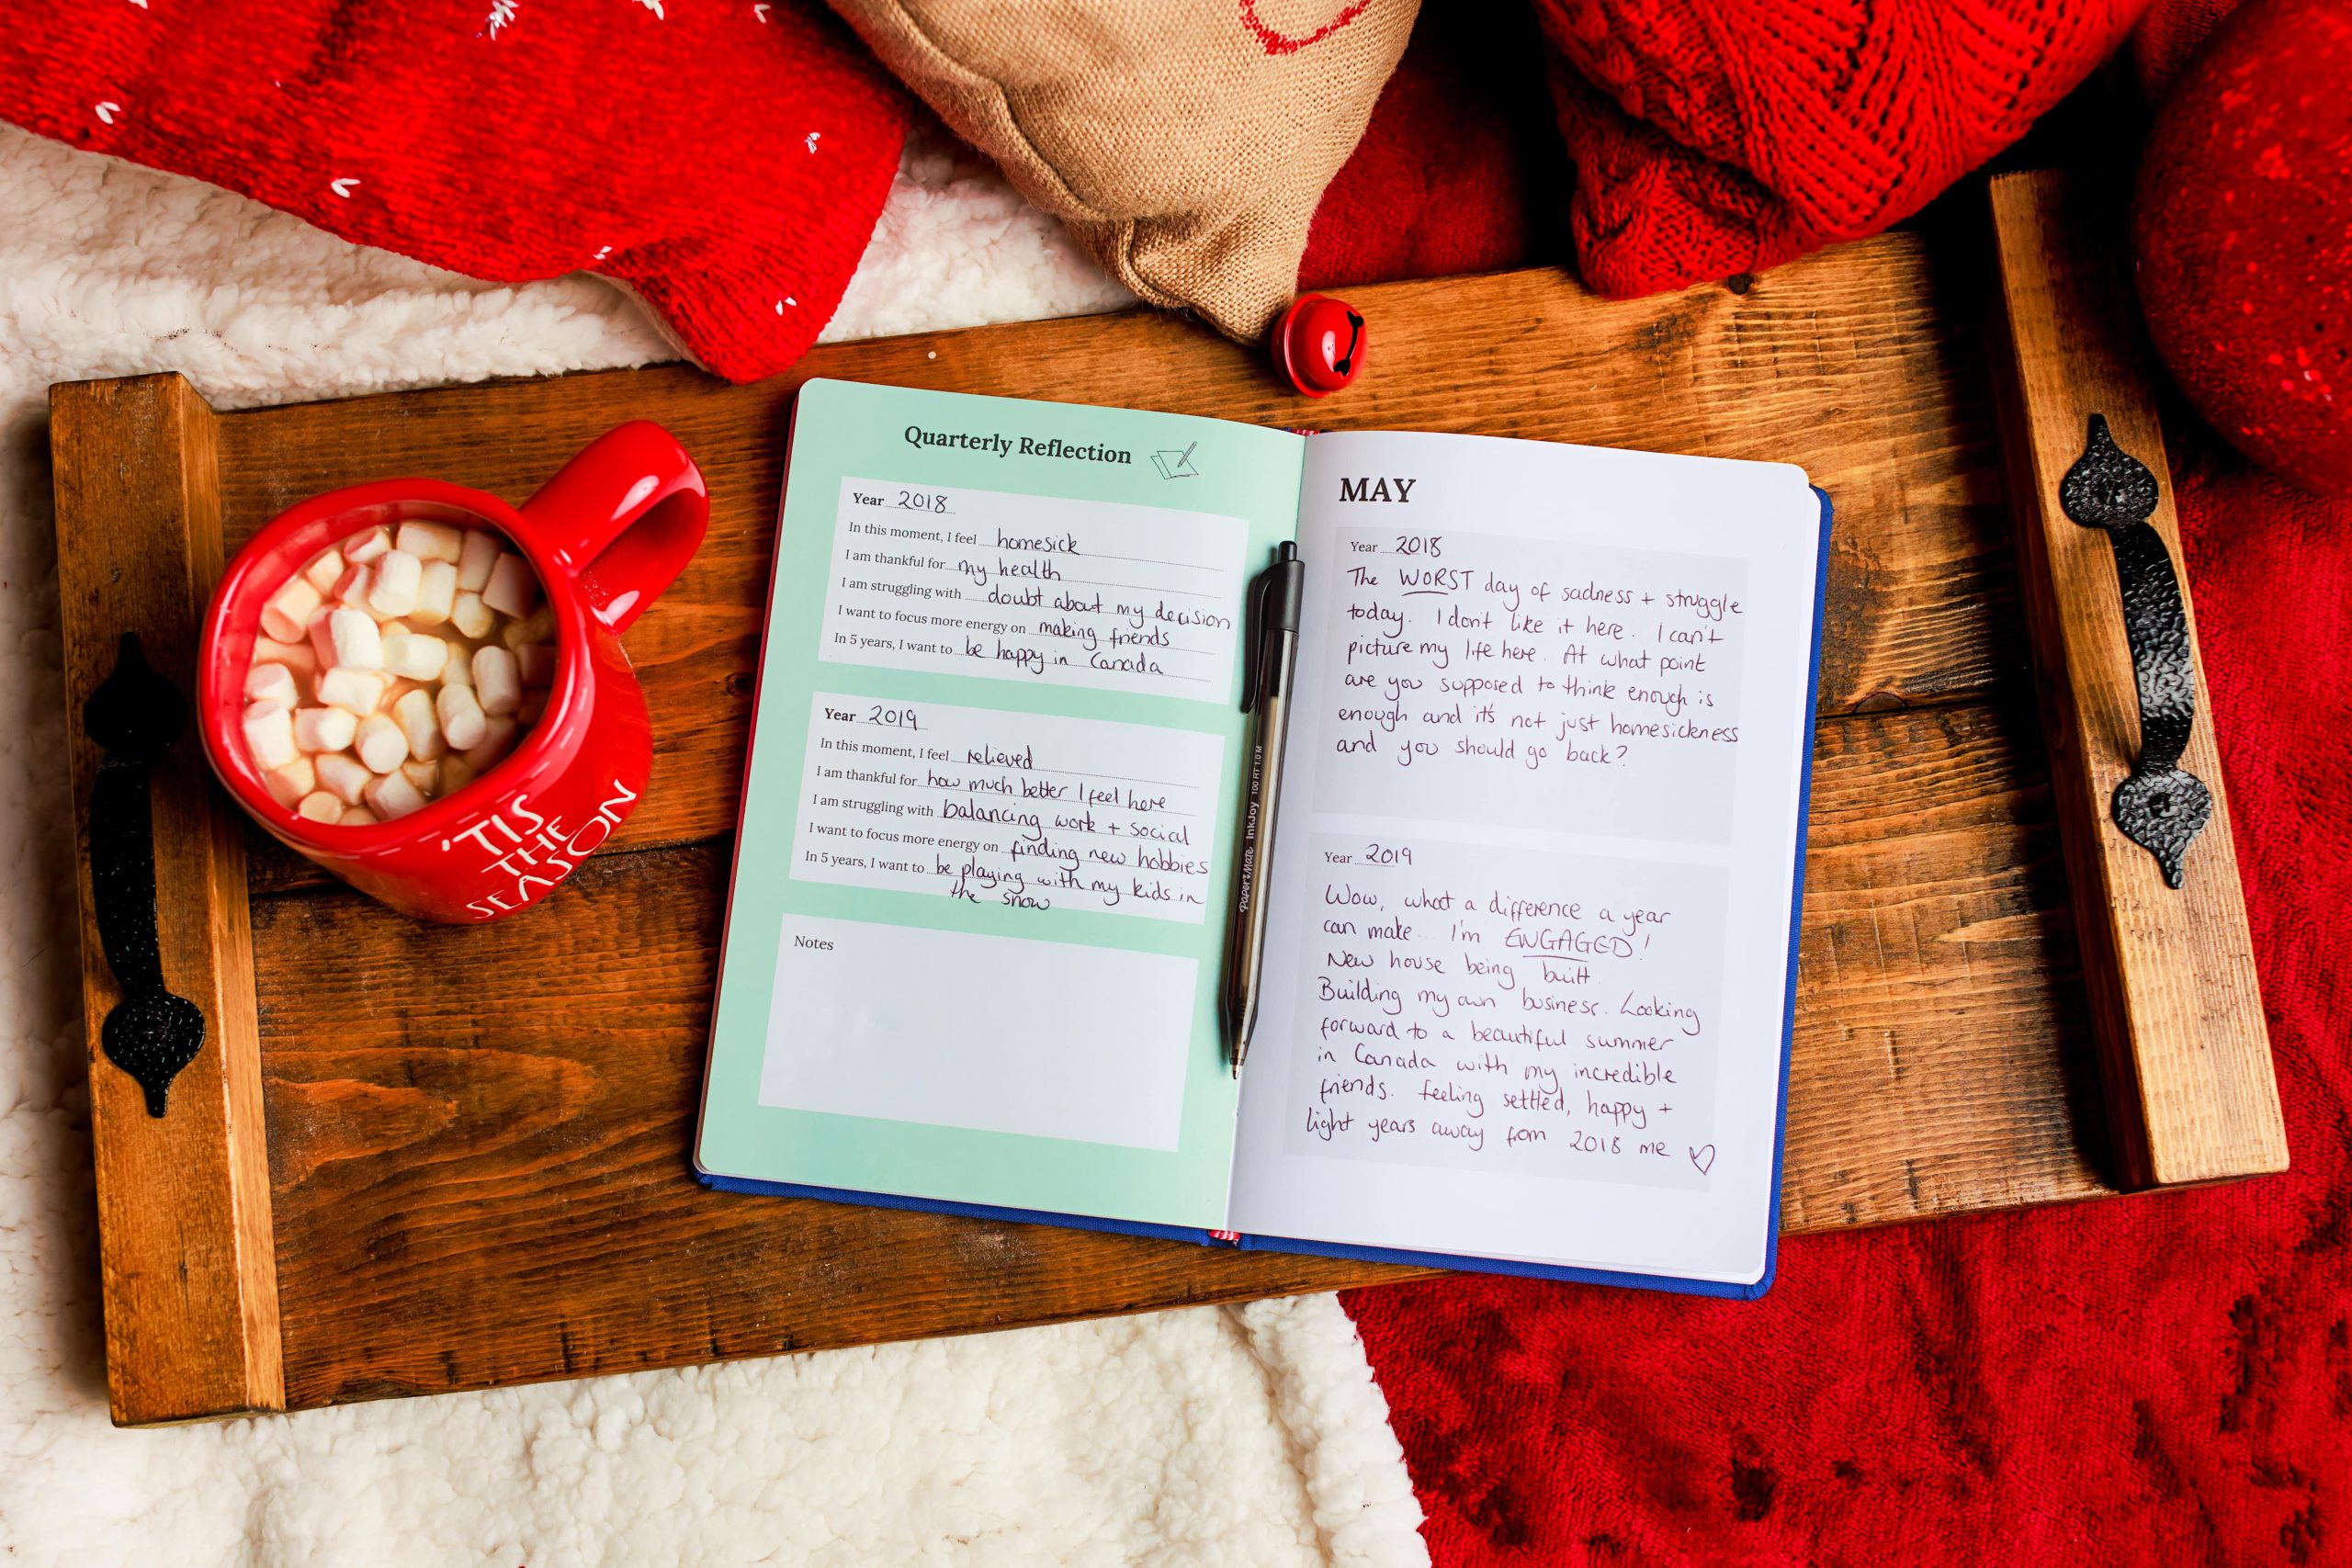 'TIS
THE
SEASON
Quarterly Reflection
Year 2018
In this moment, I feel homesick
I am thankful for my health
I am struggling with doubt about my decision
I want to focus more energy on making friends
In 5 years, I want to be happy in Canada
Year 2019
In this moment, I feel relieved
I am thankful for how much better I feel here
I am struggling with balancing work + social
I want to focus more energy on finding new hobbies
In 5 years, I want to be playing with my kids in
the snow
Notes
Paper Mate InkJoy 100 RT 1.0 M
MAY
Year 2018
The WORST day of sadness + struggle
today. I don't like it here. I can't
picture my life here. At what point
are you supposed to think enough is
enough and it's not just homesickness
and you should go back?
Year 2019
Wow, what a difference a year
can make... I'm ENGAGED!
New house being built.
Building my own business. Looking
forward to a beautiful summer
in Canada with my incredible
friends. Feeling settled, happy +
light years away from 2018 me ♡